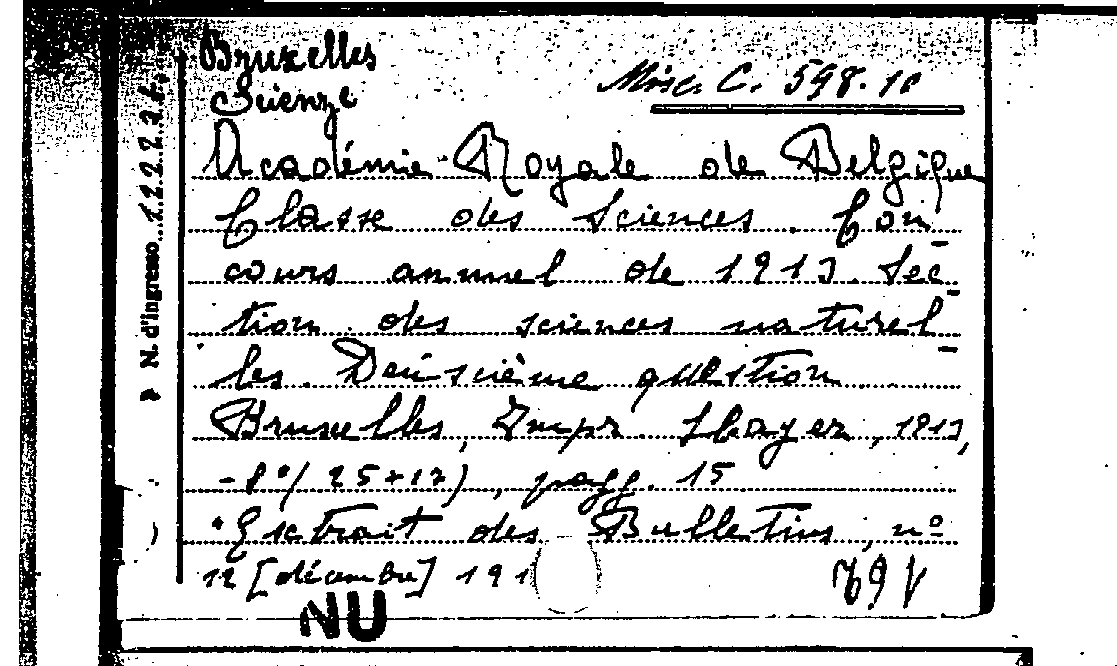 Bruxelles
Scienze
Misc. C. 598.10
N. d'ingresso 122274
Académie Royale de Belgique
Classe des Sciences. Con-
cours annuel de 1913. Sec-
tion des sciences naturel-
les. Deuxième question
Bruxelles, Impr. Hayez, 1913,
-8°(25+17), pagg. 15
"Extrait des Bulletins, n°
12 [décembre] 191
NU